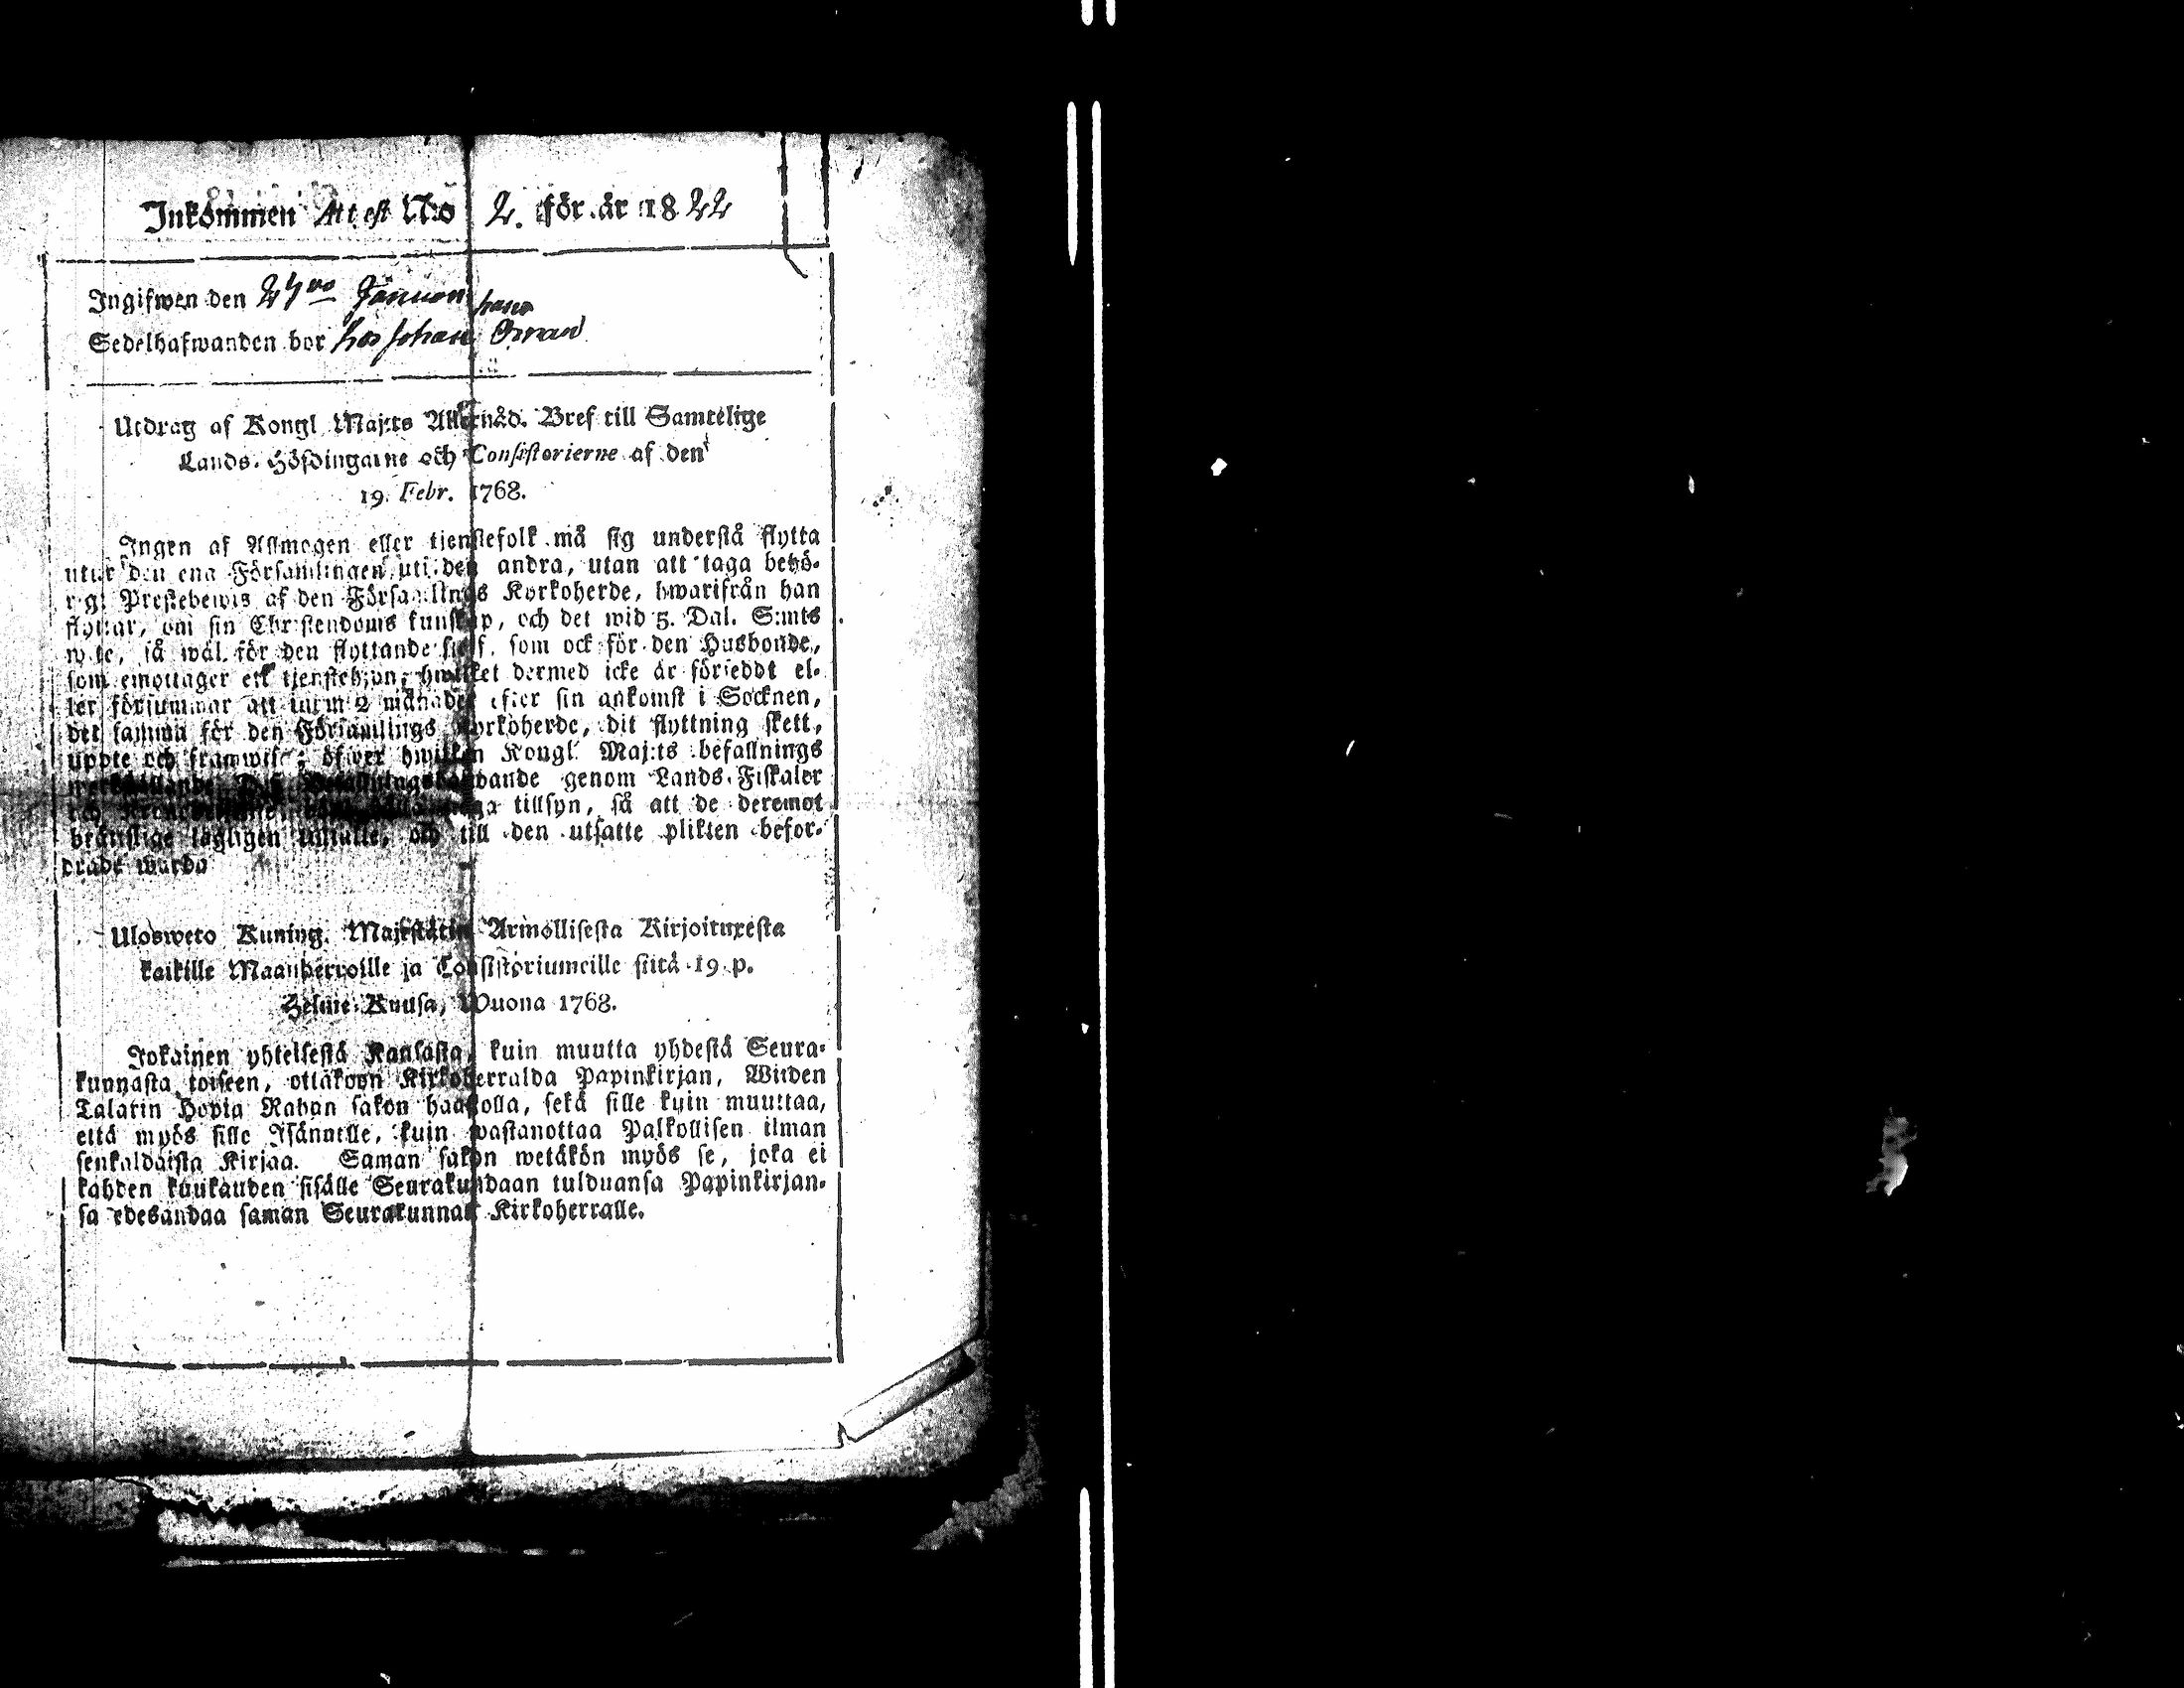 Inkommen Attest N:o 2. för år 1822
Ingifwen den 27 Januari
Sedelhafwanden bor hos Johan
Utdrag af Kongl Maj:ts Allernåd. Bref till Samtelige
Lands-Höfdingarne och Consistorierne af den
19. Febr. 1768.
Ingen af Allmogen eller tjenstefolk må sig understå flytta
utur den ena Församlingen uti den andra, utan att taga behö-
rigt Prestebewis af den Församlings Kyrkoherde, hwarifrån han
flyttar, om sin Christendoms kunskap, och det wid 5. Dal. S:mts
wite, så wäl för den flyttande sjelf, som ock för den Husbonde,
som emottager ett tjenstehjon, hwilket dermed icke är försedt el-
ler försummar att inom 2 månader efter sin ankomst i Socknen,
det samma för den Församlings Kyrkoherde, dit flyttning skett,
uppte och framwise; öfwer hwilken Kongl Maj:ts befallnings
Befallningshafwande genom Lands-Fiskaler
och tillsyn, så att de deremot
bräntslige lagligen tilltalte, och till den utsatte plikten befor-
drade warda
Ulosweto Kuning. Majestätin Armollisesta Kirjoituxesta
kaikille Maanherroille ja Consistoriumeille siitä 19 p.
Helme-Kuusa, Wuona 1768.
Jokainen yhteisestä Kansasta, kuin muutta yhdestä Seura-
kunnasta toiseen, ottakoon Kirkoherralda Papinkirjan, Wiiden
Talarin Hopia Rahan sakon haastolla, sekä sille kuin muuttaa,
että myös sille Isännälle, kuin wastanottaa Palkollisen ilman
senkaldaista Kirjaa. Saman sakon wetäkön myös se, joka ei
kahden kuukauden sisälle Seurakundaan tulduansa Papinkirjan-
sa edesandaa saman Seurakunnan Kirkoherralle.